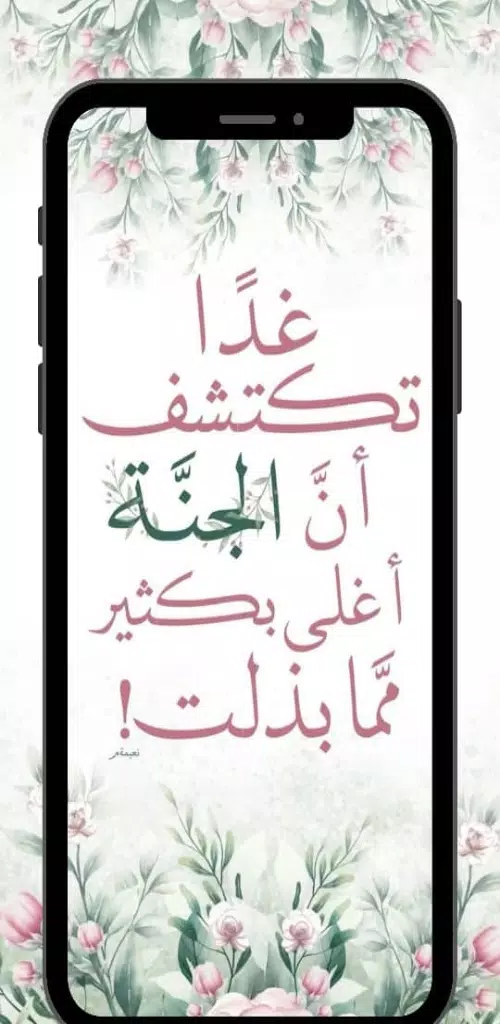 غدًا
تكتشف
أنَّ الجنَّة
أغلى بكثير
ممَّا بذلت!
نعيمةم